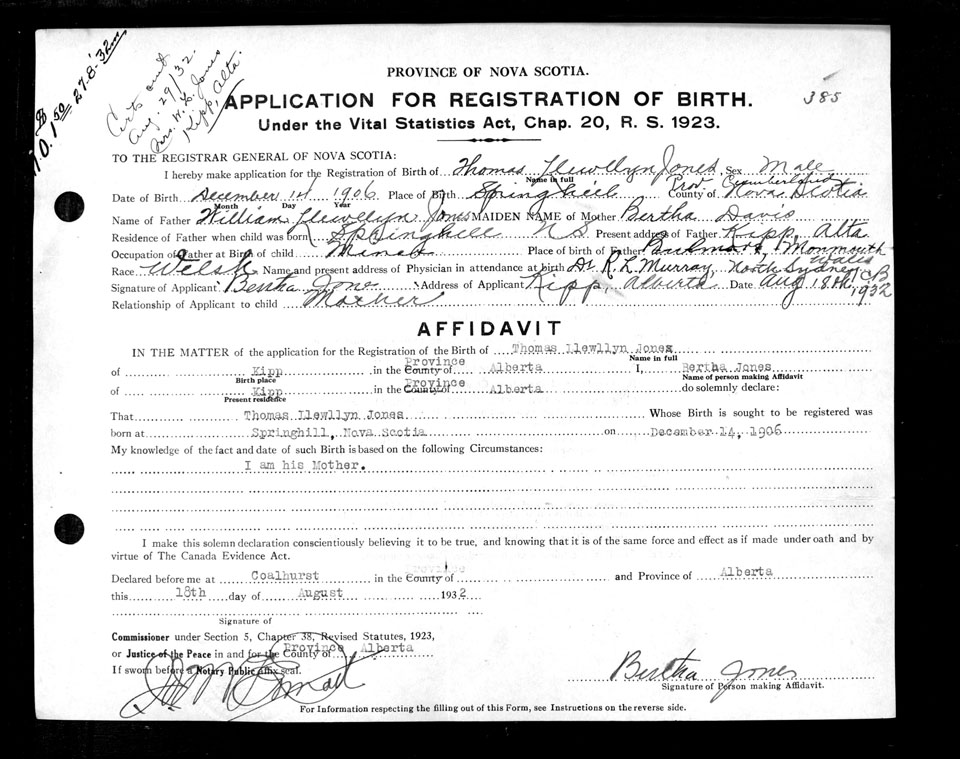 Certs sent
Aug. 29/32
Mrs. W. L. Jones
Kipp, Alta.
1 50 27-8-'32
PROVINCE OF NOVA SCOTIA.
APPLICATION FOR REGISTRATION OF BIRTH.
385
Under the Vital Statistics Act, Chap. 20, R. S. 1923.
TO THE REGISTRAR GENERAL OF NOVA SCOTIA:
I hereby make application for Registration of Birth of Thomas Llewllyn Jones Sex Male
Name in full
Prov Cumberland
Date of Birth December 14 1906 Place of Birth Springhill County of Nova Scotia
Month Day Year
Name of Father William Llewellyn Jones MAIDEN NAME of Mother Bertha Davis
Residence of Father when child was born Springhill N S Present address of Father Kipp, Alta
Occupation of Father at Birth of child Miner Place of birth of Father Monmouth
Wales
Race Welsh Name and present address of Physician in attendance at birth Dr R. L. Murray, North Sydney CB
Signature of Applicant Bertha Jones Address of Applicant Kipp, Alberta Date Aug 18th 1932
Relationship of Applicant to child Mother
AFFIDAVIT
IN THE MATTER of the application for the Registration of the Birth of Thomas Llewllyn Jones
Name in full
Province
of Kipp in the County of Alberta I, Bertha Jones
Birth place Name of person making Affidavit
Province
of Kipp in the County of Alberta do solemnly declare:
Present residence
That Thomas Llewllyn Jones Whose Birth is sought to be registered was
born at Springhill, Nova Scotia on December 14, 1906
My knowledge of the fact and date of such Birth is based on the following Circumstances:
I am his Mother.
I make this solemn declaration conscientiously believing it to be true, and knowing that it is of the same force and effect as if made under oath and by
virtue of The Canada Evidence Act.
Province
Declared before me at Coalhurst in the County of and Province of Alberta
this 18th day of August 1932
Signature of
Commissioner under Section 5, Chapter 38, Revised Statutes, 1923,
Province
or Justice of the Peace in and for the County of Alberta
If sworn before a Notary Public affix seal.
Bertha Jones
Signature of Person making Affidavit.
For Information respecting the filling out of this Form, see Instructions on the reverse side.